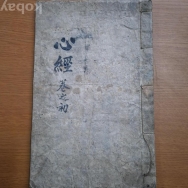 kobay
心經
卷之初